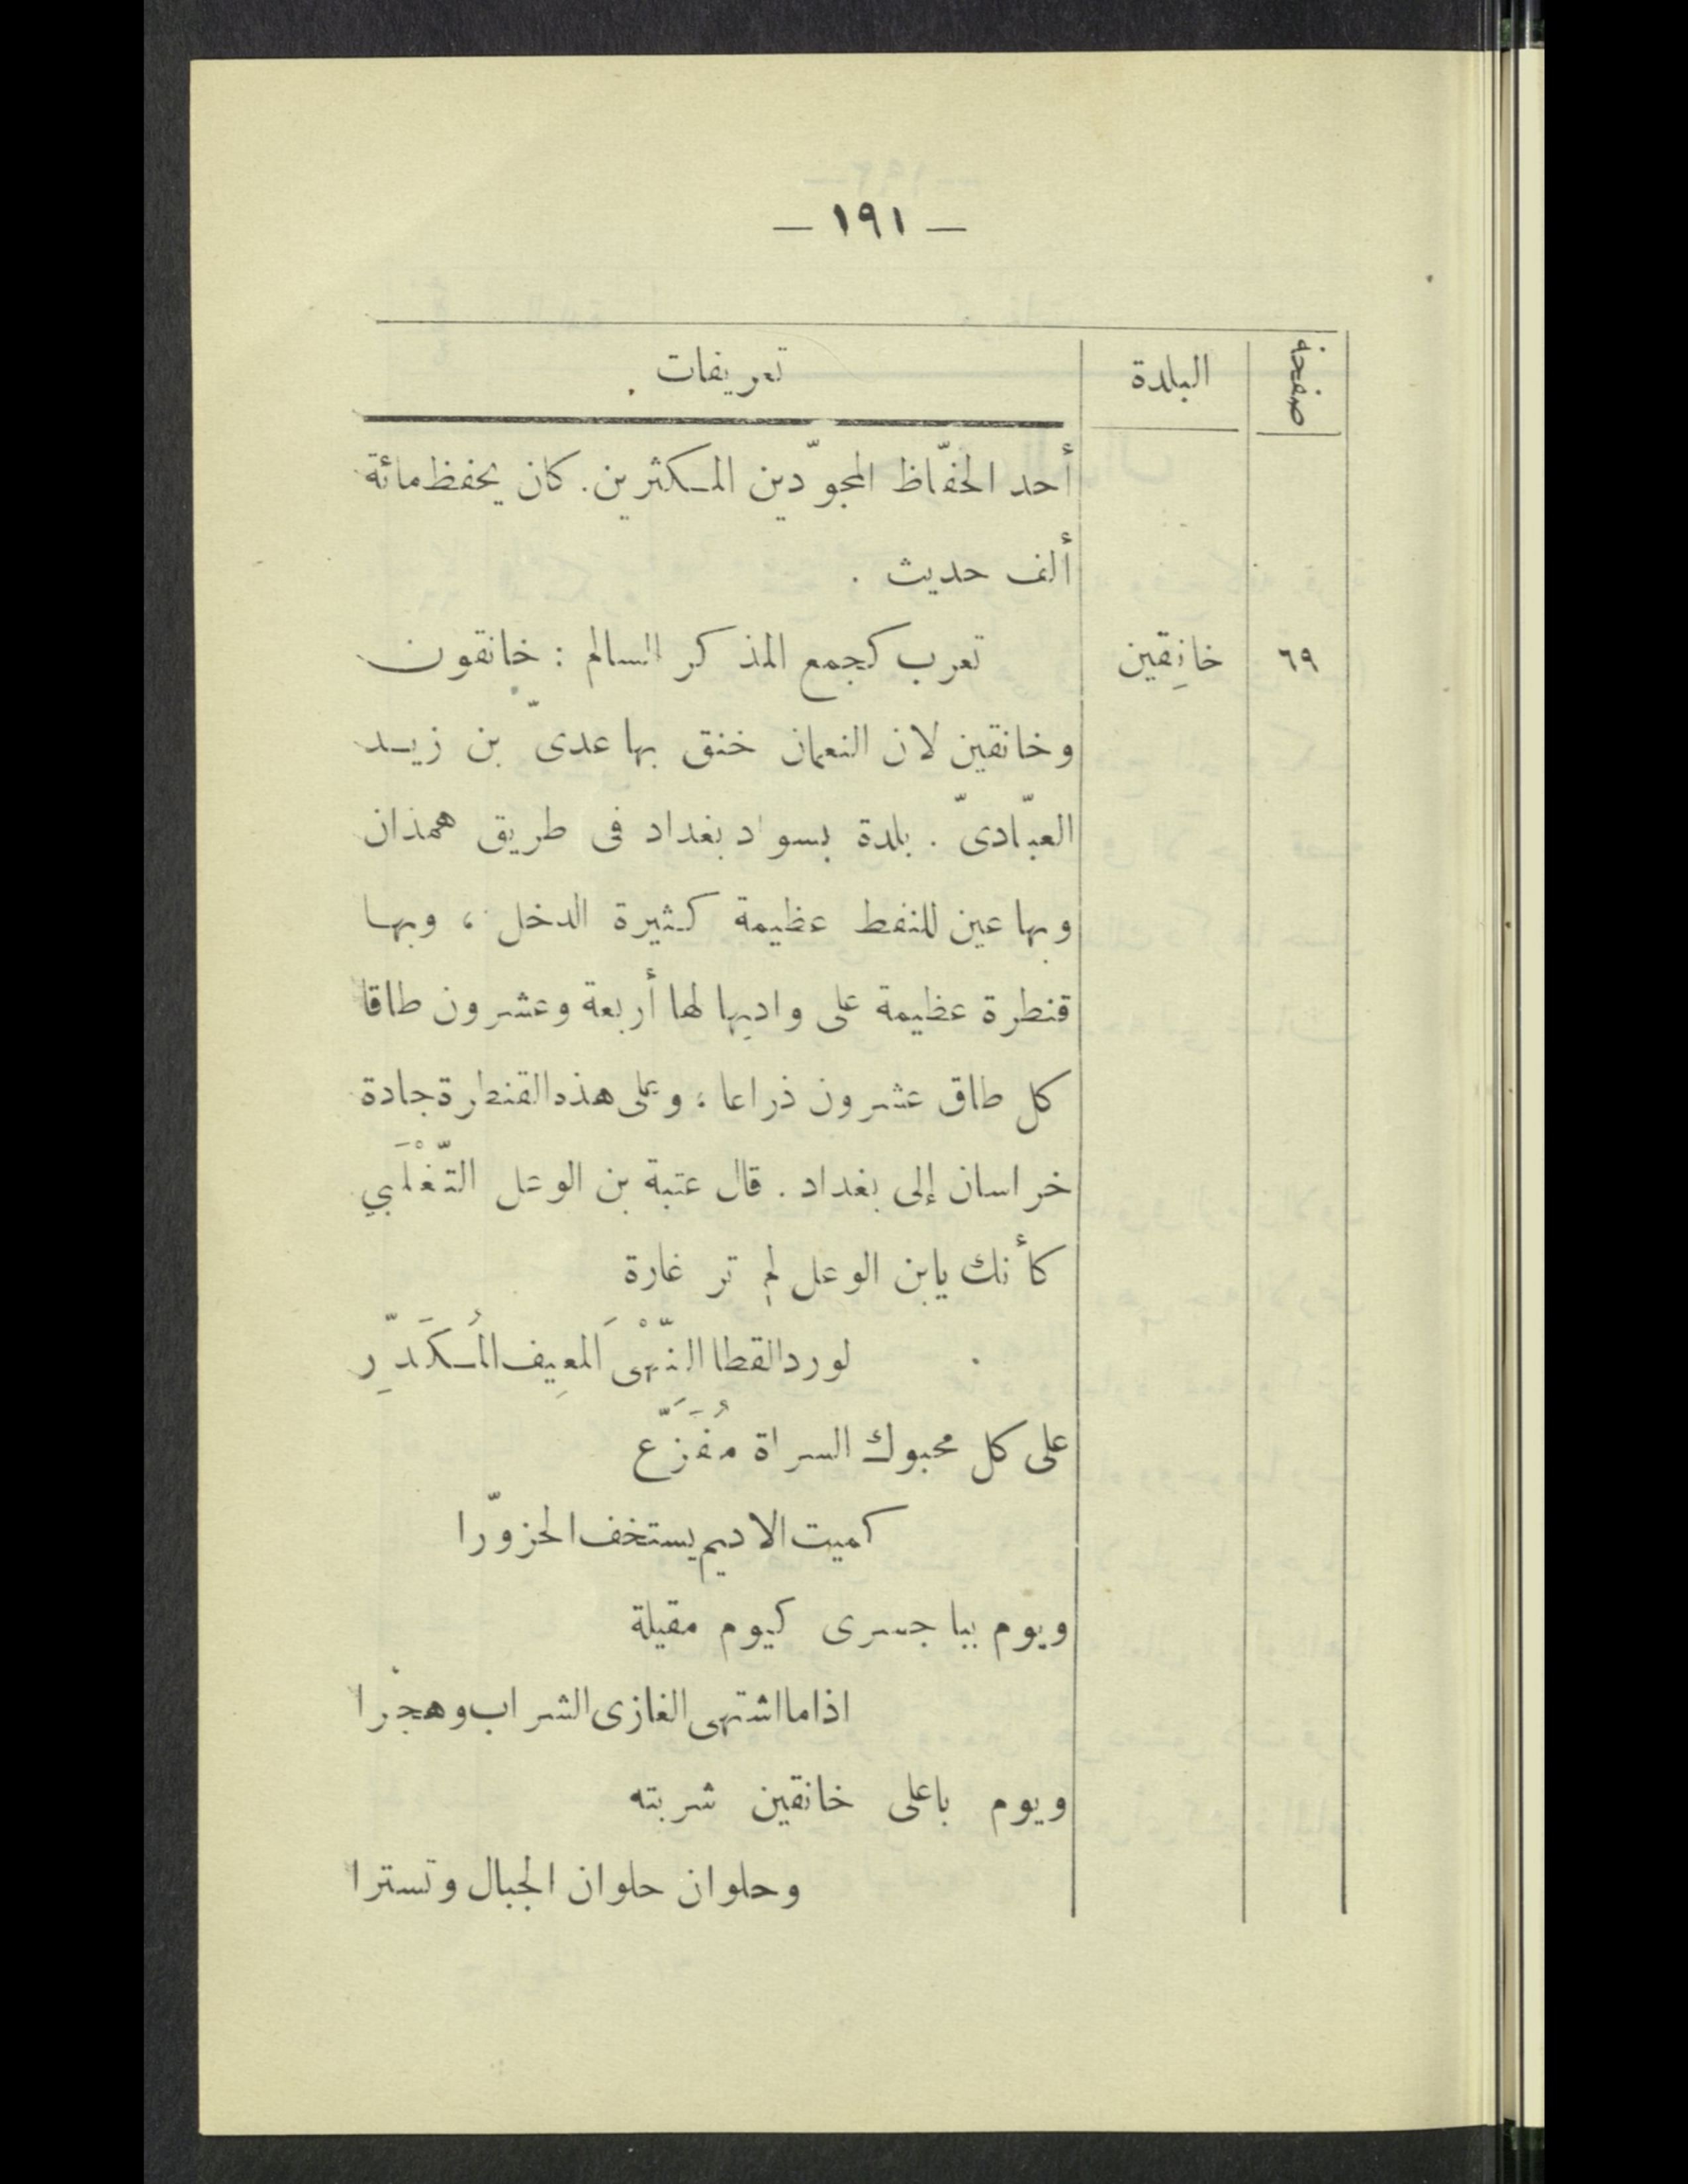 — ١٩١ —
صفحة البلدة تعريفات
أحد الحفّاظ المجوّدين المكثرين. كان يحفظ مائة
ألف حديث .
٦٩ خانِقين تعرب كجمع المذكر السالم : خانقون
وخانقين لان النعمان خنق بها عدىّ بن زيد
العبّادىّ . بلدة بسواد بغداد فى طريق همذان
وبها عين للنفط عظيمة كثيرة الدخل ، وبها
قنطرة عظيمة على واديها لها أربعة وعشرون طاقا
كل طاق عشرون ذراعا ؛ وعلى هذه القنطرة جادة
خراسان إلى بغداد . قال عتبة بن الوعل التّغْلَبي
كأنك يابن الوعل لم تر غارة
لورد القطا النّهْىَ المَعِيف المُكَدّرِ
على كل محبوك السراة مُفَزَّع
كميت الاديم يستخف الحزوّرا
ويوم بباجسرى كيوم مقيلة
اذا ما اشتهى الغازى الشراب وهجرا
ويوم باعلى خانقين شربته
وحلوان حلوان الجبال وتسترا